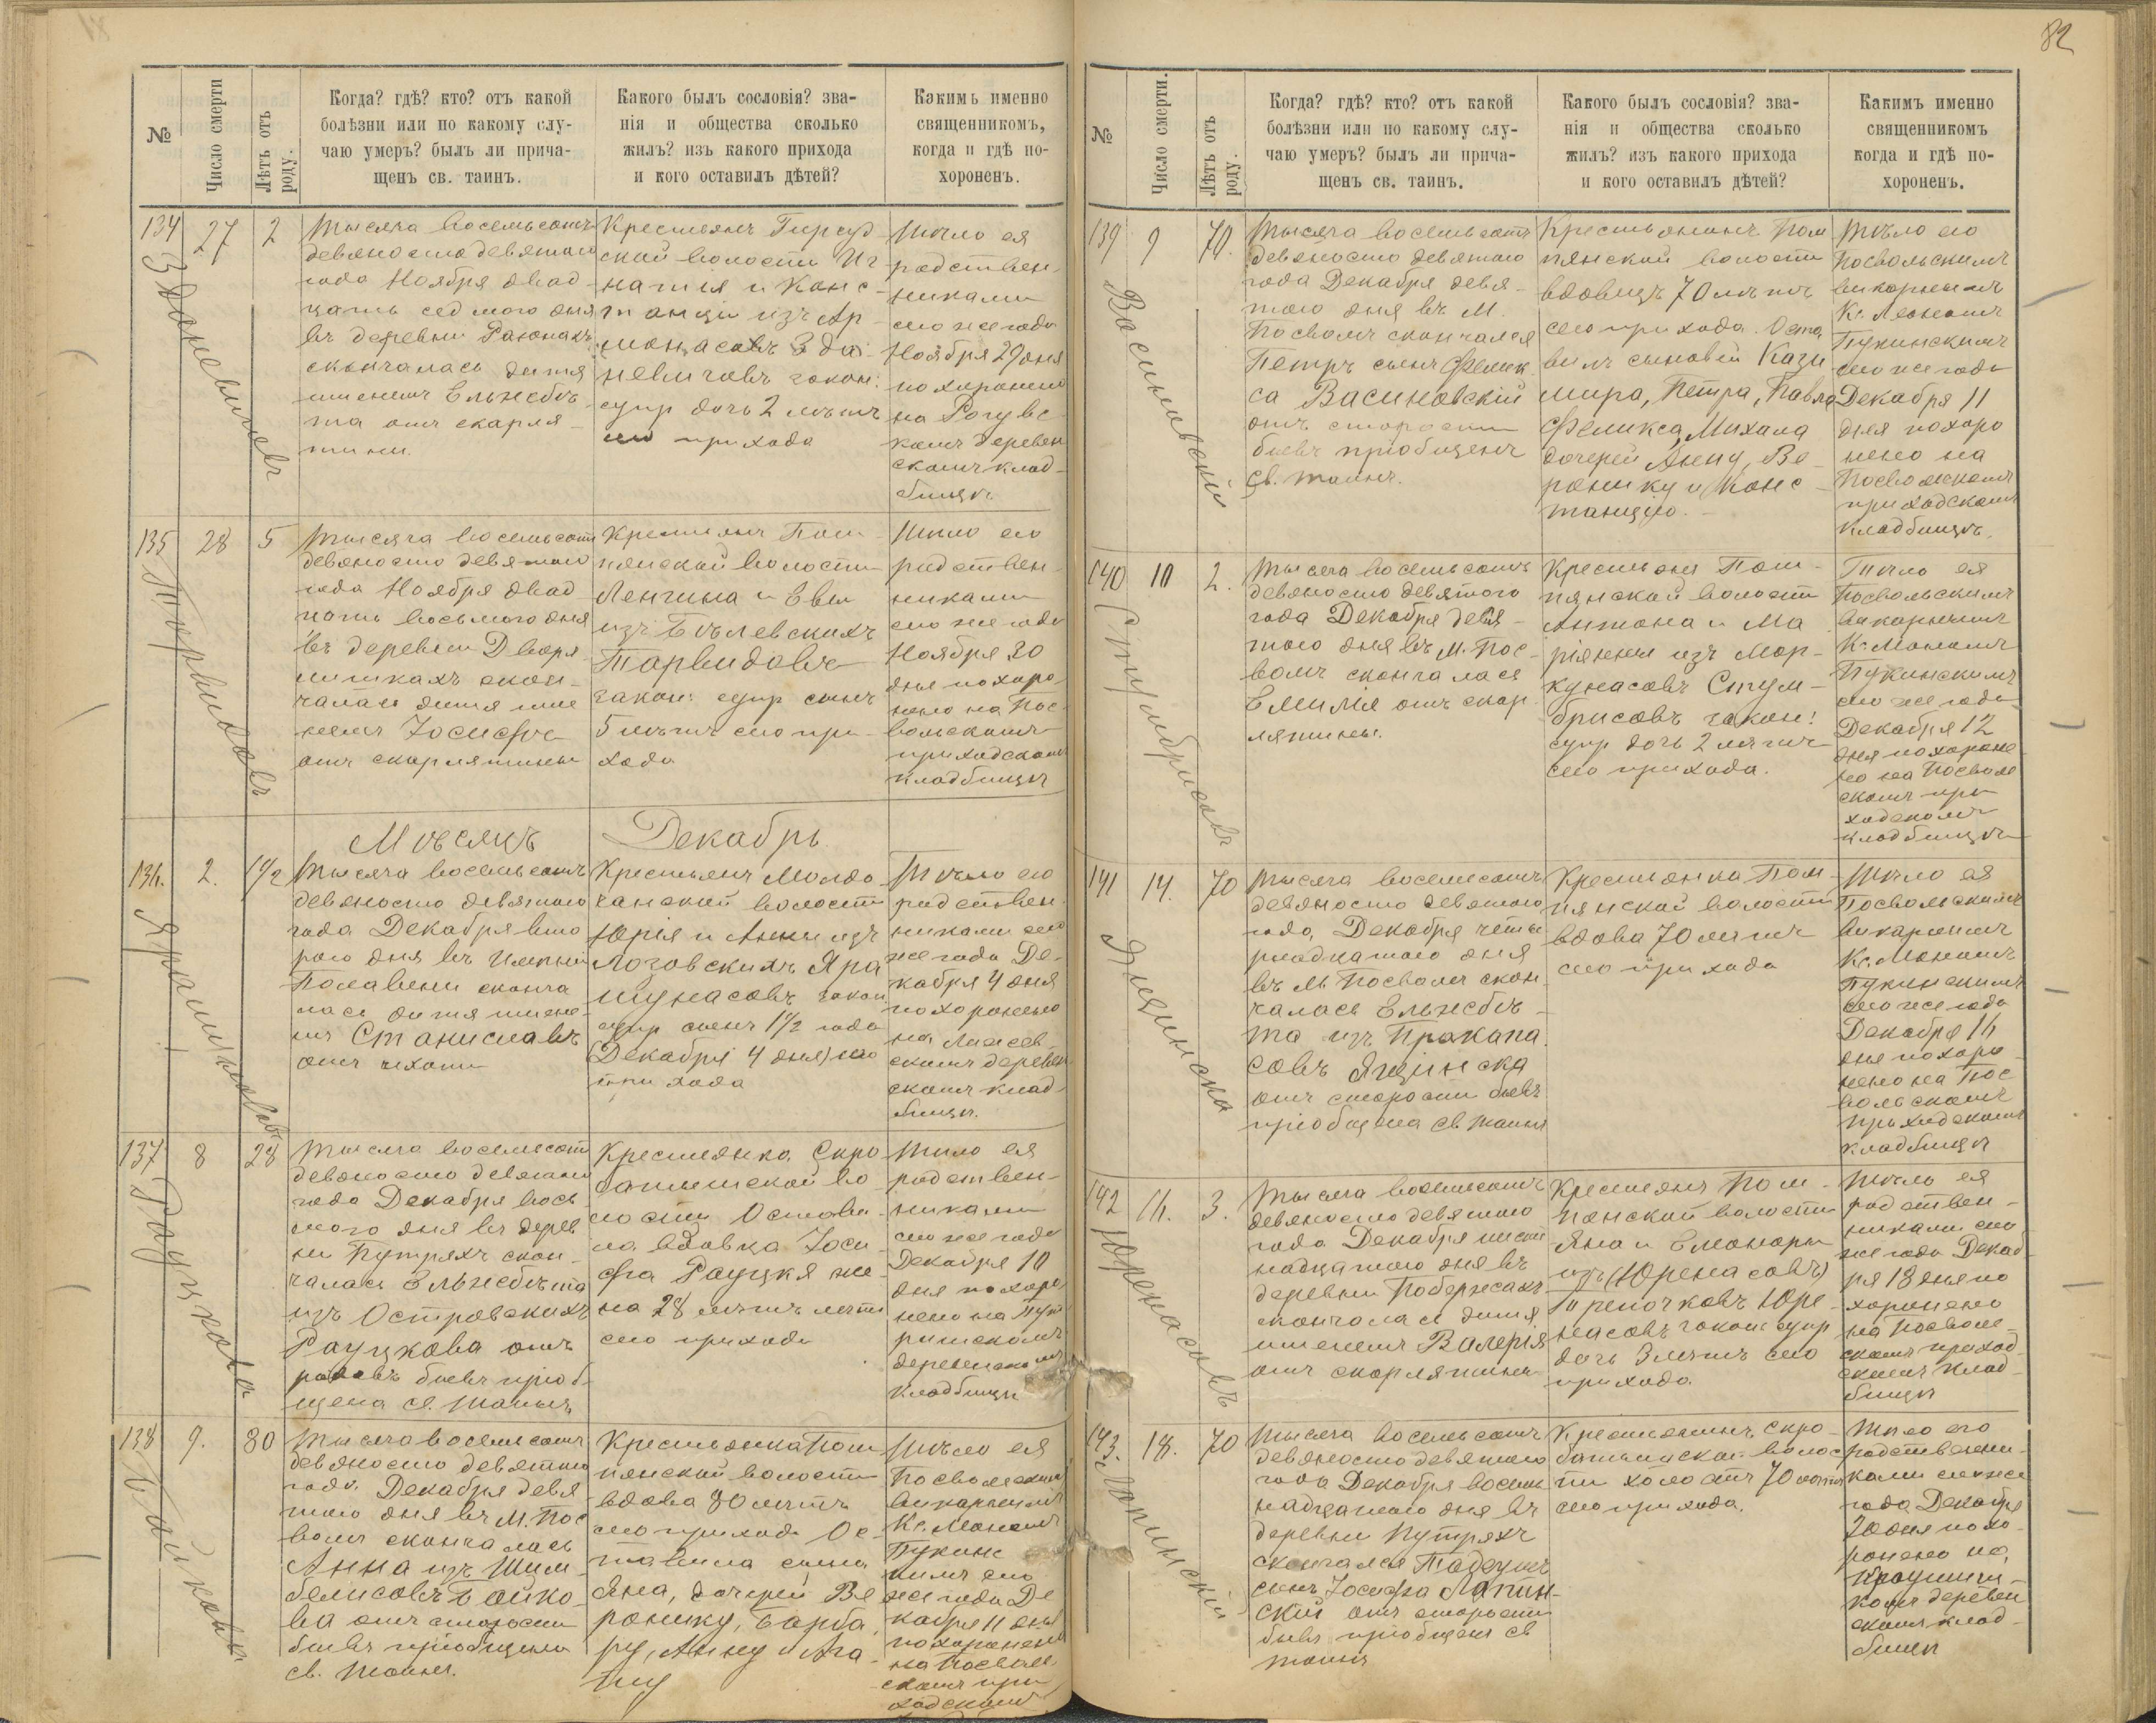 82
№
Число смерти
Лѣтъ отъ роду.
Когда? гдѣ? кто? отъ какой
болѣзни или по какому слу-
чаю умеръ? былъ ли прича-
щенъ св. таинъ.
Какого былъ сословія? зва-
нія и общества сколько
жилъ? изъ какого прихода
и кого оставилъ дѣтей?
Какимъ именно
священникомъ,
когда и гдѣ по-
хороненъ.
134
27
2
Тысяча восемьсотъ
девяносто девятаго
года Ноября двад-
цать седмого дня
въ деревни Раюнахъ
скончалась дитя
именемъ Ельжебѣ-
та отъ скарля-
тини.
Крестьянъ Гирсуд-
ской волости Иг-
натія и Конс-
танціи изъ Ар-
монасовъ Зда-
невичовъ закон:
супр дочь 2 лѣтъ
сего прихода
Тѣло ея
родствен-
никами
сего же года
Ноября 29 дня
похоронено
на
комъ деревен
скомъ клад-
бищѣ
135
28
5
Тысяча восемьсотъ
девяносто девятаго
года Ноября двад
цать восьмого дня
въ деревни Дворя
нишкахъ скон-
чался дитя име
немъ Іосифъ
отъ скарлятины
Крестьянъ Пом-
пянской волости
и Евы
изъ Бѣлевскихъ
Тарвидовъ
закон: супр сынъ
5 лѣтъ сего при-
хода
Тѣло его
родствен-
никами
сего же года
Ноября 30
дня похоро
нено на Пос-
вольскомъ
приходскомъ
кладбищѣ
Тарвидовъ
Мѣсяцъ Декабрь
136.
2.
1½
Тысяча восемьсотъ
девяносто девятаго
года Декабря вто
рого дня въ имѣніи
сконча
лась дитя имене
мъ Станиславъ
отъ
Крестьянъ
волости
Юрія и Анны изъ
Лозовскихъ Яра
шунасовъ закон
супр сынъ 1½ года
(Декабря 4 дня) сего
прихода
Тѣло его
родствен-
никами сего
же года Де-
кабря 4 дня
похоронено
на
скомъ деревен
скомъ клад-
бищѣ.
137
8
28
Тысяча восемьсотъ
девяносто девятаго
года Декабря вось
мого дня въ дерев
ни Путряхъ скон-
чалась Ельжебѣта
изъ Островскихъ
Рауцкова отъ
родовъ бывъ пріоб-
щена св. Таинъ
Крестьянка Скро
батишской во-
лости Остави
ла вдовца Іоси
фа Рауцкя же-
на 28 лѣтъ
сего прихода
Тѣло ея
родствен-
никами
сего же года
Декабря 10
дня похоро
нено на Пут
ришскомъ
деревенскомъ
кладбищѣ
Рауцкова
138
9.
80
Тысяча восемьсотъ
девяносто девятаго
года Декабря девя
того дня въ М. Пос
волѣ скончалась
Анна изъ Шим-
белисовъ Бойко-
ва отъ старости
бывъ пріобщена
св. Таинъ.
Крестьянка Пом
пянской волости
вдова 80 лѣтъ
сего прихода Ос-
тавила сына
Яна, дочерей Ве
ронику, Барба
ру, Анну и Ага-
ту
Тѣло ея
Посвольскимъ
викарнымъ
Кс.
Пукинс
кимъ сего
же года Де
кабря 11 дня
похоронено
на Посволь
скомъ при
ходскомъ
№
Число смерти.
Лѣтъ отъ роду.
Когда? гдѣ? кто? отъ какой
болѣзни или по какому слу-
чаю умеръ? былъ ли прича-
щенъ св. таинъ.
Какого былъ сословія? зва-
нія и общества сколько
жилъ? изъ какого прихода
и кого оставилъ дѣтей?
Какимъ именно
священникомъ
когда и гдѣ по-
хороненъ.
139
9
70.
Тысяча восемьсотъ
девяносто девятаго
года Декабря девя-
таго дня въ М.
Посволѣ скончался
Петръ сынъ Феликса
Васиновскій
отъ старости
бывъ пріобщенъ
Св. Таинъ.
Крестьянинъ Пом
пянской волости
вдовецъ 70 лѣтъ
сего прихода. Оста
вилъ сыновей Кази
мира, Петра, Павла
Феликса, Михала
дочерей Анну, Ве-
ронику и Конс-
танцію.
Тѣло его
Посвольскимъ
викарнымъ
Кс.
Пукинскимъ
сего же года
Декабря 11
дня похоро
нено на
Посвольскомъ
приходскомъ
кладбищѣ.
140
10
2.
Тысяча восемьсотъ
девяносто девятого
года Декабря девя-
того дня въ М. Пос-
волѣ скончалася
Емилія отъ скар-
лятины.
Крестьянъ Пом-
пянской волости
Антона и Ма
ріянны изъ Мор-
кунасовъ Стум-
брисовъ закон:
супр дочь 2 лѣтъ
сего прихода.
Тѣло ея
Посвольскимъ
викарнымъ
Кс.
Пукинскимъ
сего же года
Декабря 12
дня похороне
но на Посволь
скомъ при
ходскомъ
кладбищѣ
Стумбрисовъ
141
14.
70
Тысяча восемьсотъ
девяносто девятаго
года, Декабря четы
рнадцатаго дня
въ М Посволѣ скон
чалась Ельжебѣ-
та изъ Пракапа
совъ Яцинска
отъ старости бывъ
пріобщена Св Таинъ
Крестьянка Пом-
пянской волости
вдова 70 лѣтъ
сего прихода
Тѣло ея
Посвольскимъ
викарнымъ
Кс.
Пукинскимъ
сего же года
Декабря 16
дня похоро
нено на Пос
вольскомъ
приходскомъ
кладбищѣ
Яцинска
142
16.
3.
Тысяча восемьсотъ
девяносто девятаго
года Декабря шест
надцатаго дня въ
деревни Подержесахъ
скончалася дитя
именемъ Валерія
отъ скарлятины
Крестьянъ Пом-
пянской волости
Яна и Елеоноры
изъ (Юренасовъ)
Юре-
насовъ закон: супр
дочь 3 лѣтъ сего
прихода.
Тѣло ея
родствен-
никами сего
же года Декаб-
ря 18 дня по
хоронено
на Посволь
скомъ приход
скомъ клад-
бищѣ
Юренасовъ
143.
18.
70
Тысяча восемьсотъ
девяносто девятаго
года Декабря восем
надцатаго дня въ
деревни Путряхъ
скончался Тадеушъ
сынъ Іосифа Лапин-
скій отъ старости
бывъ пріобщенъ Св
Таинъ
Крестьянинъ Скро-
батишской волос
ти холостъ 70 лѣтъ
сего прихода.
Тѣло его
родственни-
ками сего же
года Декабря
20 дня похо-
ронено на
комъ деревен
скомъ клад-
бищѣ
Лапинскій